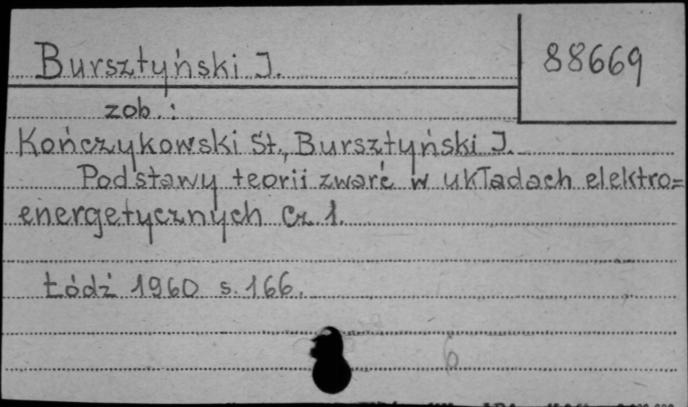 Bursztyński J.
88669
zob.:
Kończykowski St., Bursztyński J.
Podstawy teorii zwarć w układach elektro=
energetycznych Cz 1.
Łódź 1960 s. 166.
6